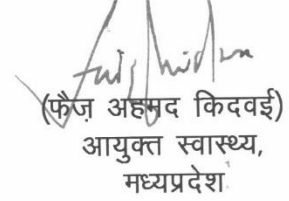 (फैज़ अहमद किदवई)
आयुक्त स्वास्थ्य,
मध्यप्रदेश